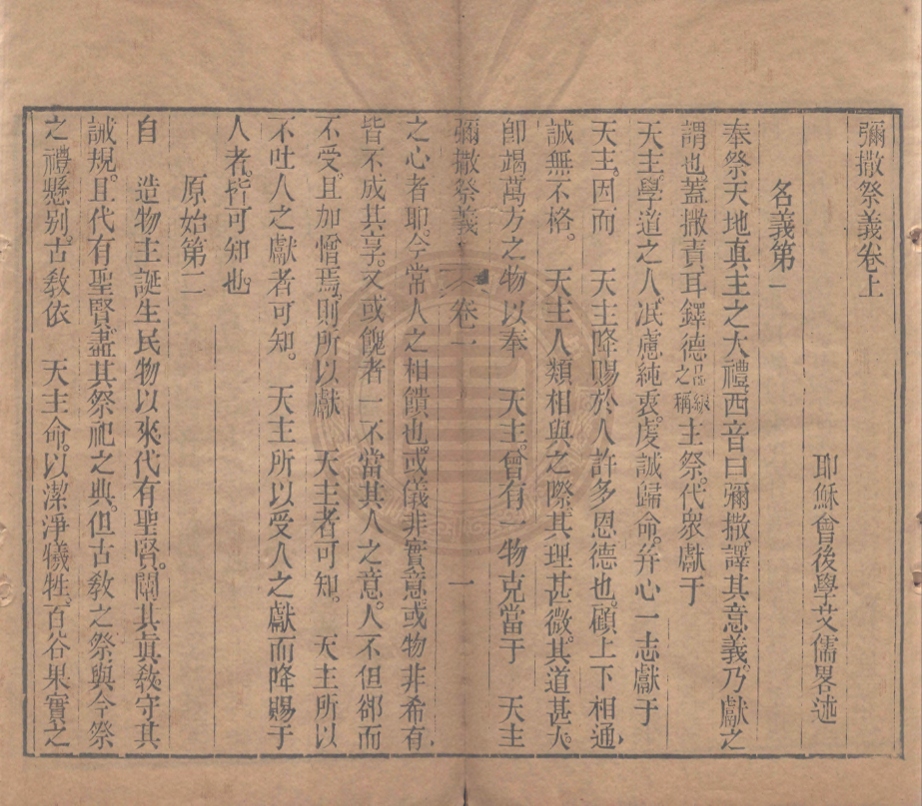 彌撒祭義卷上
耶穌會後學艾儒畧述
名義第一
奉祭天地真主之大禮。西音曰彌撒。譯其意義。乃獻之
謂也。蓋撒責耳鐸德品級之稱主祭。代衆獻于
天主。學道之人。泯慮純衷。虔誠歸命。弁心一志獻于
天主。因而 天主降賜於人許多恩德也。顧上下相通。
誠無不格。 天主人類相與之際。其理甚微。其道甚大。
卽竭萬方之物以奉 天主。曾有一物克當于 天主
彌撒祭義 卷一 一
之心者耶。今常人之相饋也。或儀非實意。或物非希有。
皆不成其享。又或餽者一不當其人之意。人不但郤而
不受。且加憎焉。則所以獻 天主者可知。 天主所以
不吐人之獻者可知。 天主所以受人之獻而降賜于
人者。皆可知也。
原始第二
自 造物主誕生民物以來。代有聖賢。闡其眞敎。守其
誡規。且代有聖賢。盡其祭祀之典。但古敎之祭與今祭
之禮懸別。古敎依 天主命。以潔淨犧牲。百谷果實之